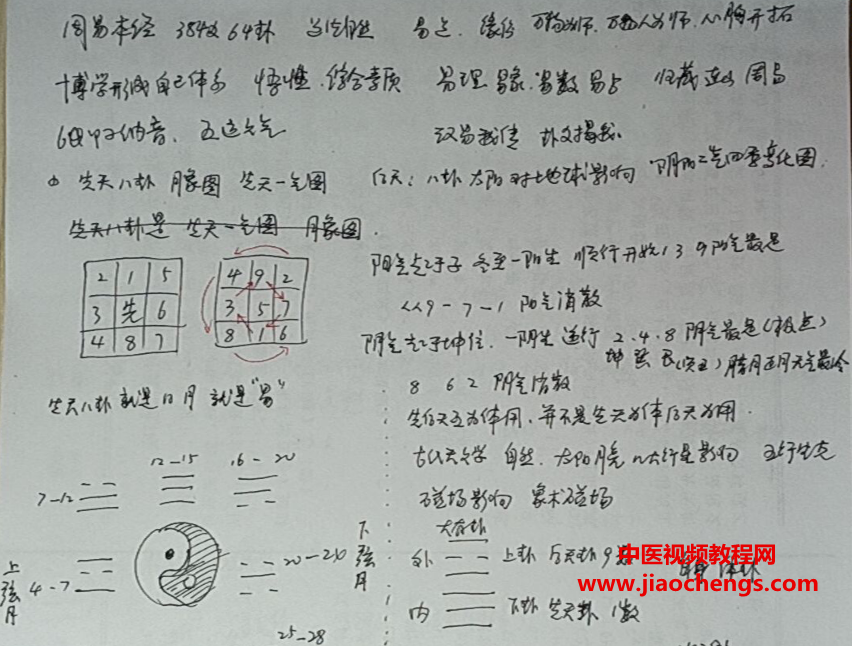 周易本经 384爻 64卦 当法自然 易点 缘份 万物为师 万物人为师 心胸开拓
博学形成自己体系 悟性、综合素质 易理 易象 易数 易占 归藏 连山 周易
60甲子纳音、五运六气
先天八卦 月象图 先天一气图 后天: 八卦 太阳对地球影响 阴阳二气四季变化图.
先天八卦是 先天一气图 月象图.
阳气点于子 冬至一阳生 顺行开始 1 3 9 阳气最足
2 1 5
3 先 6
4 8 7
4 9 2
3 5 7
8 1 6
9-7-1 阳气消散
阴气 于坤位. 一阴生 逆行 2.4.8 阴气最足(极点)
坤 巽 艮 腊月正月天气最冷
8 6 2 阴气消散
先天八卦就是日月 就是"易"
先后天互为体用、并不是先天为体后天为用.
古代天文学 自然. 太阳月亮 八大行星影响 五行生克
磁场影响 象术磁场
12-15 16-20
7-12
上弦月 4-7
下弦月
20-20
25-28
大有卦
外 上卦 后天卦 9数
内 下卦 先天卦 1数
中医视频教程网
www.jiaochengs.com